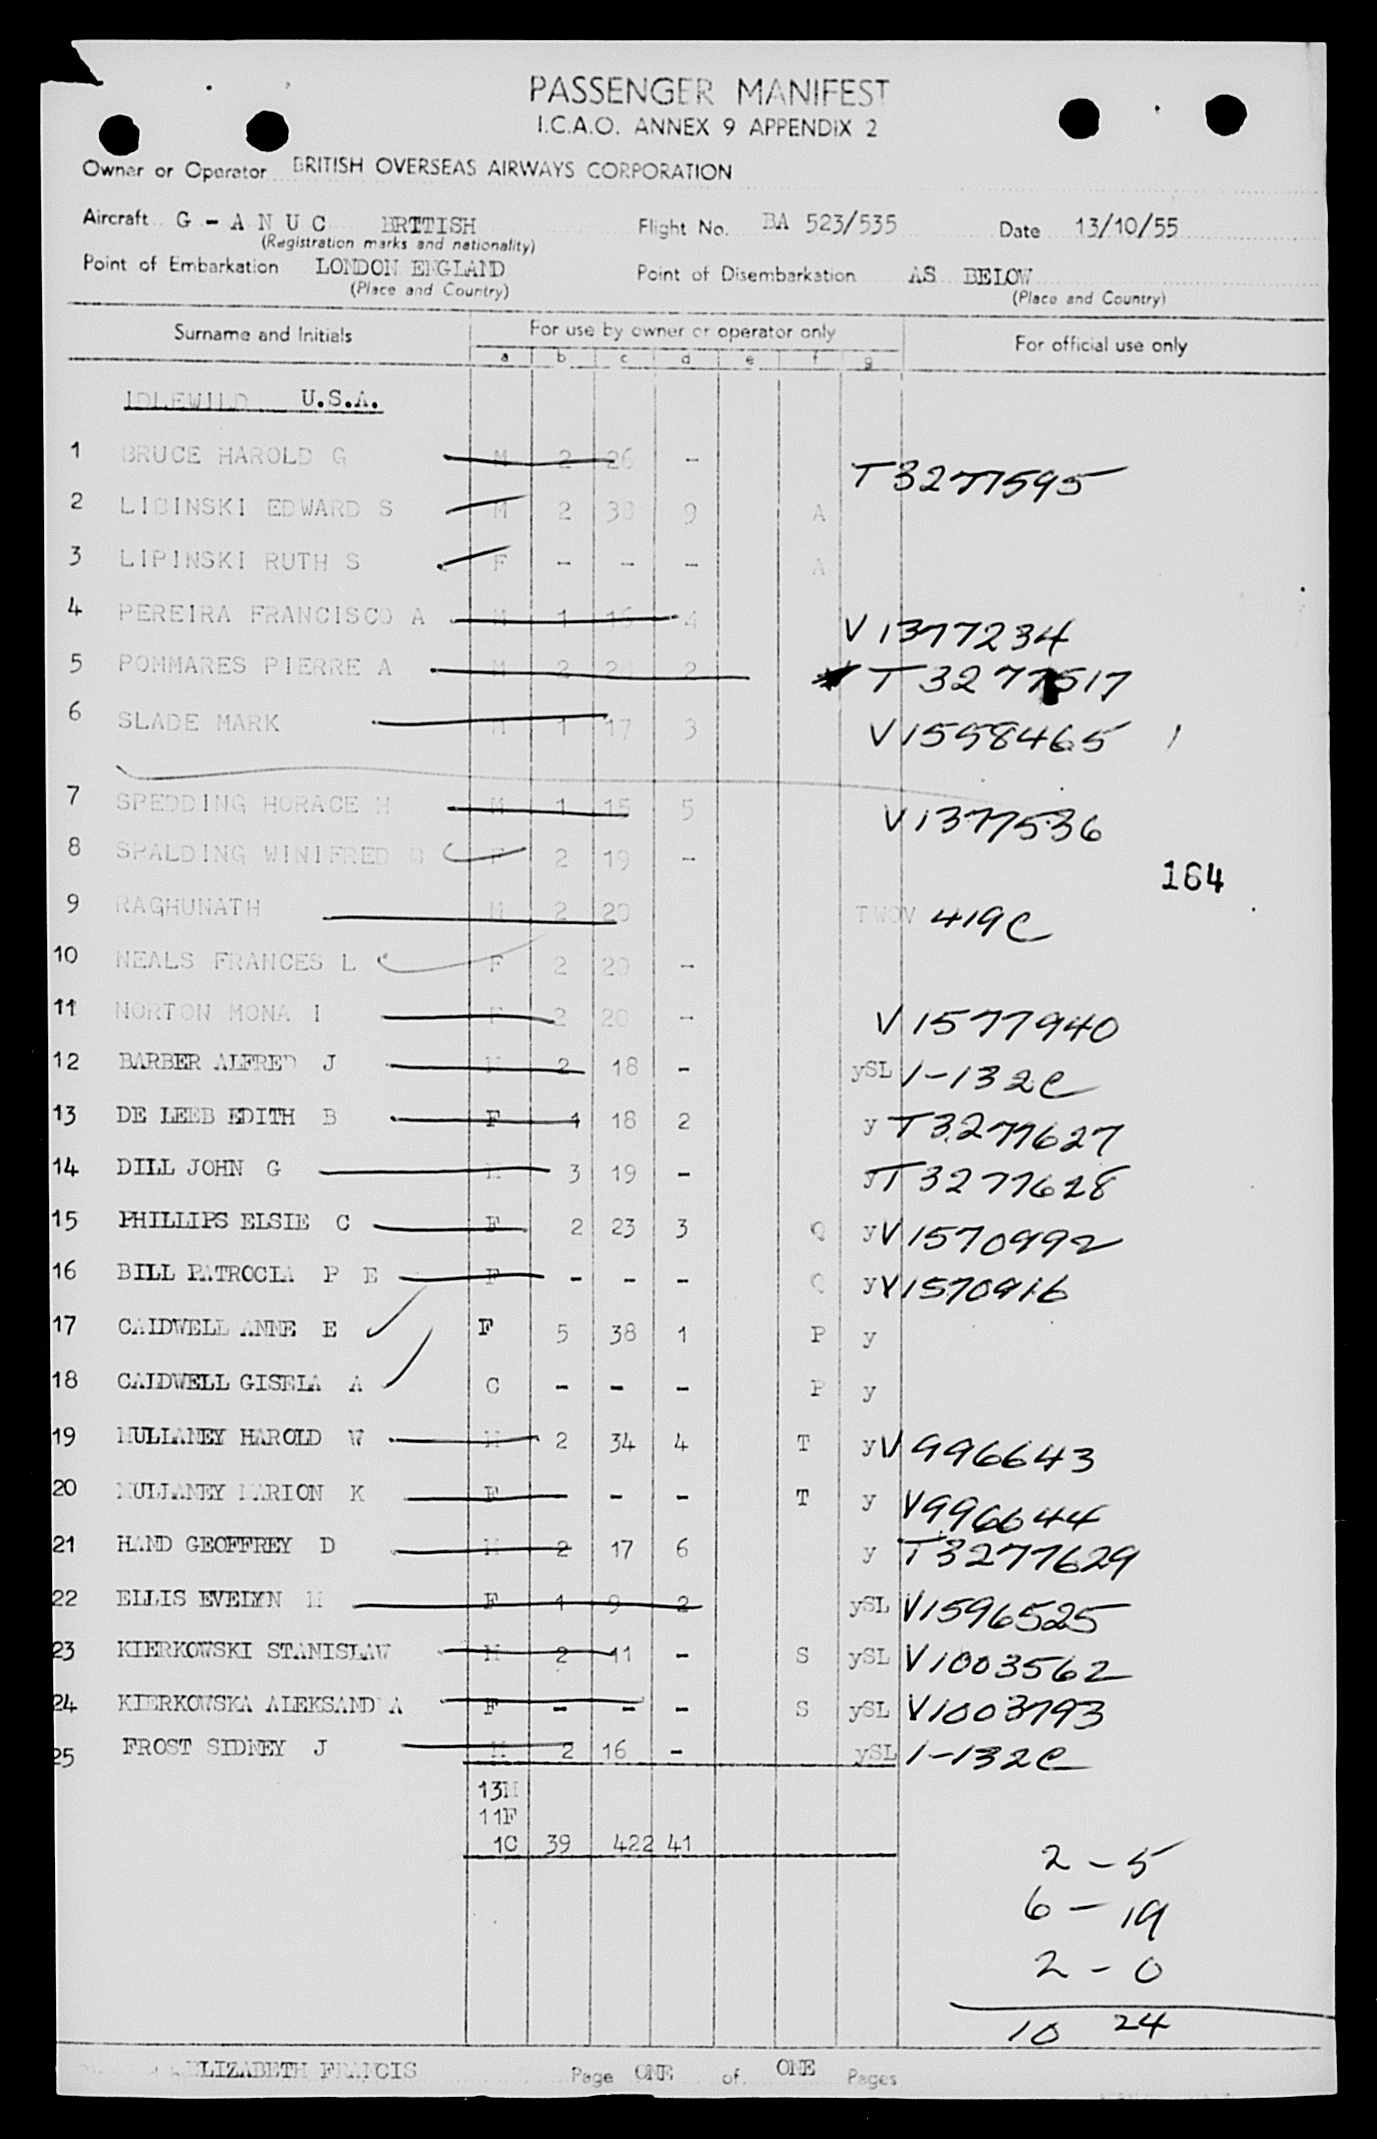 PASSENGER MANIFEST
I.C.A.O. ANNEX 9 APPENDIX 2
Owner or Operator BRITISH OVERSEAS AIRWAYS CORPORATION
Aircraft G - A N U C BRITISH Flight No. BA 523/535 Date 13/10/55
(Registration marks and nationality)
Point of Embarkation LONDON ENGLAND Point of Disembarkation AS BELOW
(Place and Country) (Place and Country)
Surname and Initials For use by owner or operator only For official use only
a b c d e f g
IDLEWILD U.S.A.
1 BRUCE HAROLD G M 2 26 - T3277595
2 LIBINSKI EDWARD S M 2 38 9 A
3 LIPINSKI RUTH S F - - - A
4 PEREIRA FRANCISCO A M 1 16 4 V1377234
5 POMMARES PIERRE A M 2 2 T3277517
6 SLADE MARK M 1 17 3 V1558465 1
7 SPEDDING HORACE H M 1 15 5 V1377536
8 SPALDING WINIFRED F 2 19 -
164
9 RAGHUNATH M 2 20 TWOV 419C
10 NEALS FRANCES L F 2 20 -
11 NORTON MONA I F 2 20 - V1577940
12 BARBER ALFRED J M 2 18 - ySL 1-132C
13 DE LEEB EDITH B F 1 18 2 y T3277627
14 DILL JOHN G M 3 19 - y T3277628
15 PHILLIPS ELSIE C F 2 23 3 Q y V1570992
16 BILL PATROCLA P E F - - - Q y V1570916
17 CAIDWELL ANNE E F 5 38 1 P y
18 CAIDWELL GISELA A C - - - P y
19 MULLANEY HAROLD W M 2 34 4 T y V996643
20 MULLANEY MARION K F - - - T y V996644
21 HAND GEOFFREY D M 2 17 6 y T3277629
22 ELLIS EVELYN M F 1 9 2 ySL V1596525
23 KIERKOWSKI STANISLAW M 2 11 - S ySL V1003562
24 KIERKOWSKA ALEKSANDRA F - - - S ySL V1003793
25 FROST SIDNEY J M 2 16 - ySL 1-132C
13M
11F
1C 39 422 41
2 - 5
6 - 19
2 - 0
10 24
ELIZABETH FRANCIS Page ONE of ONE Pages